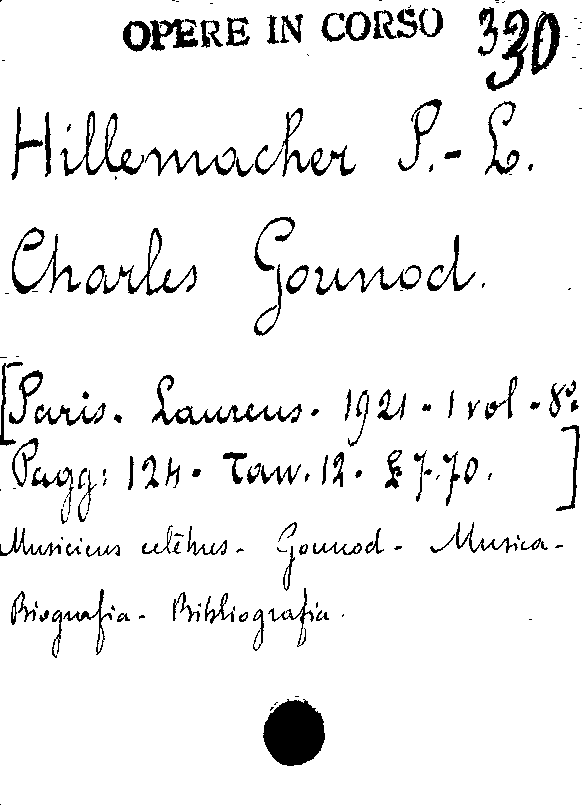 OPERE IN CORSO 330
Hillemacher P.-L.
Charles Gounod.
[Paris. Laurens. 1921. 1 vol. 8º
Pagg: 124. Tav. 12. £ 7.70. ]
Musiciens célèbres - Gounod - Musica -
Biografia - Bibliografia.